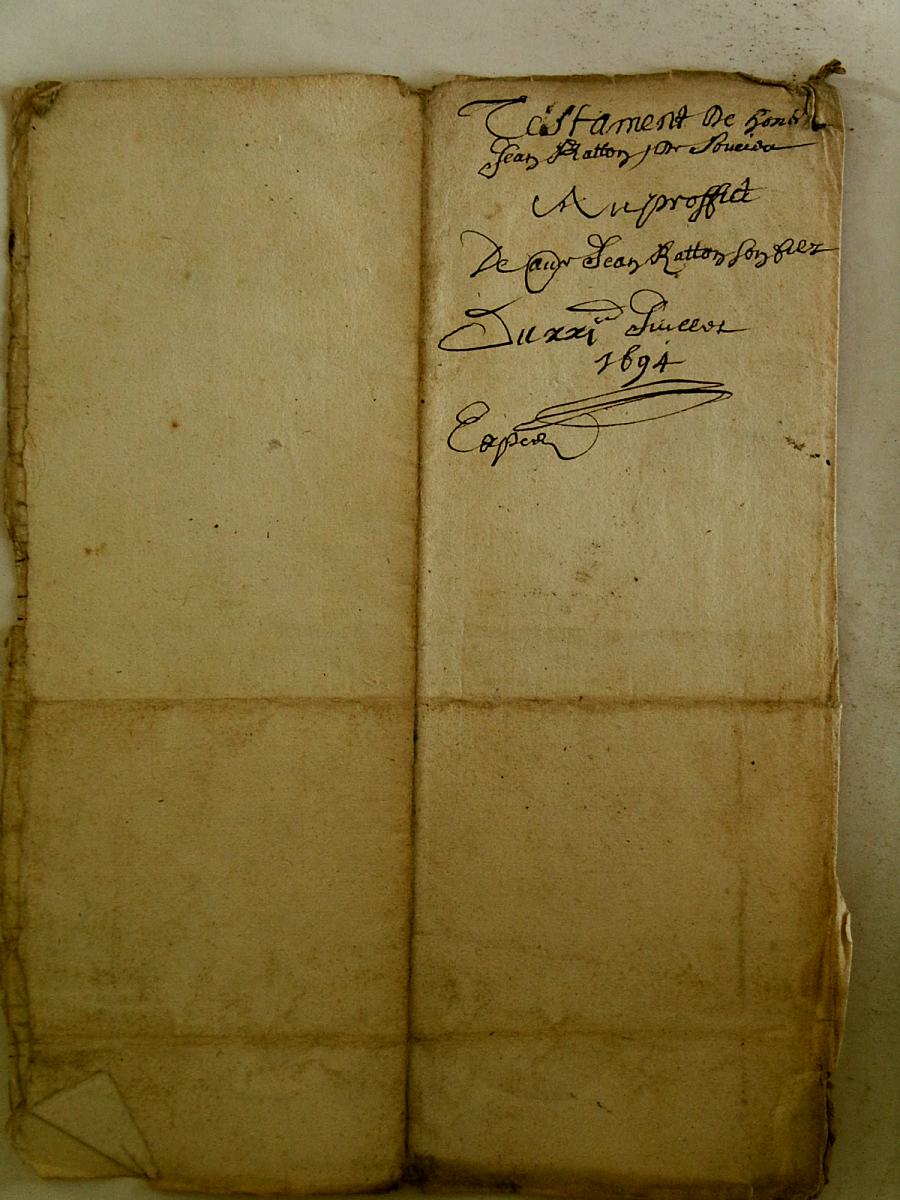 Testament De honble
Jean Ratton, De Soucieu
Au proffict
De Jean Ratton son filz
Du xxi Juillet
1694
Exped